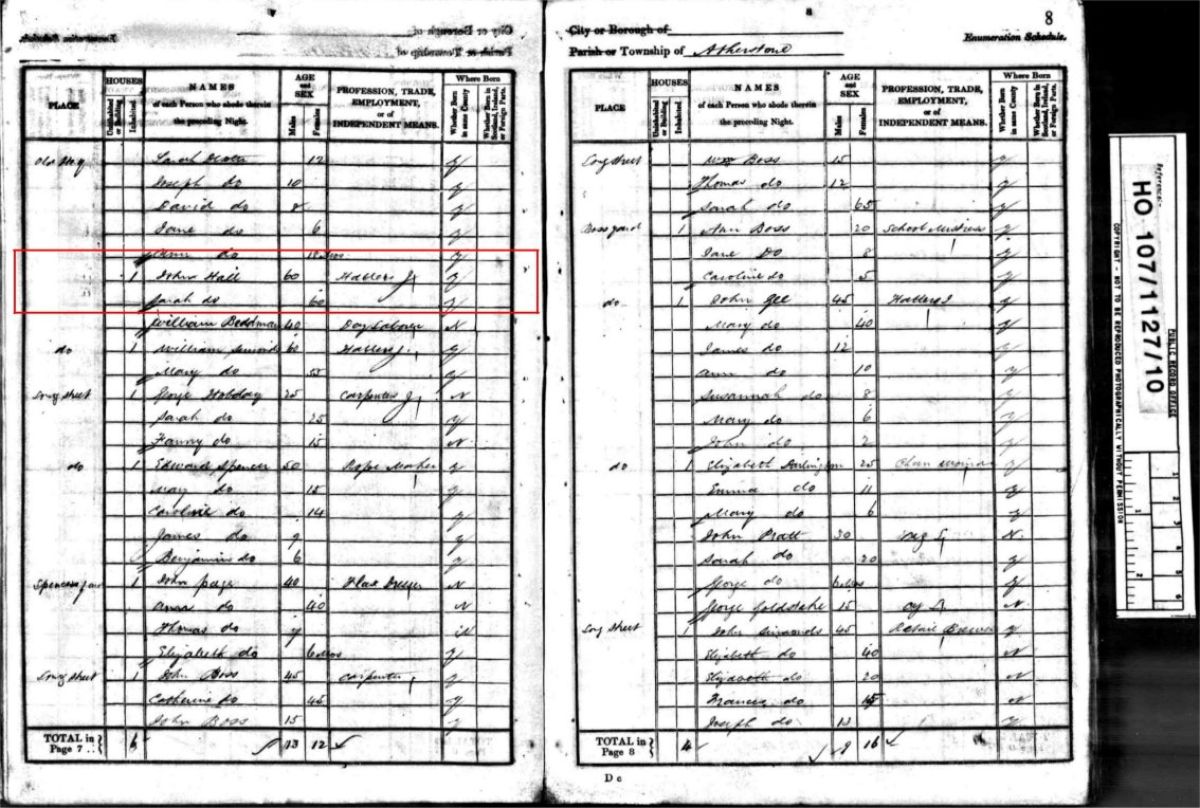 City or Borough of
Parish or Township of
Enumeration Schedule.
PLACE
HOUSES
Uninhabited or Building
Inhabited
NAMES
of each Person who abode therein the preceding Night.
AGE and SEX
Males
Females
PROFESSION, TRADE, EMPLOYMENT, or of INDEPENDENT MEANS.
Where Born
Whether Born in same County
Whether Born in Scotland, Ireland, or Foreign Parts.
Sarah 12 y
Joseph do 10 y
David do 8 y
Jane do 6 y
Ann do y
1 John Hall 60 Hatters J y
Sarah do 60 y
William Beddman 40 Day Labourer N
do 1 William 60 Hatters J y
Mary do 55 y
Long Street 1 George Hobday 25 Carpenter J N
Sarah do 25 y
Fanny do 15 N
do 1 Edward Spencer 50 Rope Maker y
Mary do 15 y
Caroline do 14 y
James do 9 y
Benjamin do 6 y
Spencers yard 1 John Page 40 Flax Dresser N
Ann do 40 N
Thomas do N
Elizabeth do 6 Mos y
Long Street 1 John Boss 45 Carpenter y
Catherine do 45 y
John Boss 15 y
TOTAL in Page 7 6 13 12
8
City or Borough of
Parish or Township of Atherstone
Enumeration Schedule.
PLACE
HOUSES
Uninhabited or Building
Inhabited
NAMES
of each Person who abode therein the preceding Night.
AGE and SEX
Males
Females
PROFESSION, TRADE, EMPLOYMENT, or of INDEPENDENT MEANS.
Where Born
Whether Born in same County
Whether Born in Scotland, Ireland, or Foreign Parts.
Long Street Wm Boss 15 y
Thomas do 12 y
Sarah do 65 y
Boss yard 1 Ann Boss 20 School Mistress y
Jane Do 8 y
Caroline do 5 y
do 1 John Gee 45 Hatters J y
Mary do 40 y
James do 12 y
Ann do 10 y
Susannah do 8 y
Mary do 6 y
John do 2 y
do 1 Elizabeth Darlington 25 Char woman y
Emma do 11 y
Mary do 6 y
John Pratt 30 N
Sarah do 20 y
George do 6 Mos y
George 15 N
Long Street 1 John Simonds 45 Retail Brewer y
Elizabeth do 40 N
Elizabeth do 20 N
Frances do 15 N
Joseph do 13 y
TOTAL in Page 8 4 9 16
D c
Reference:-
HO 107/1127/10
PUBLIC RECORD OFFICE
COPYRIGHT - NOT TO BE REPRODUCED PHOTOGRAPHICALLY WITHOUT PERMISSION
1
2
3
4
5
6
1
2